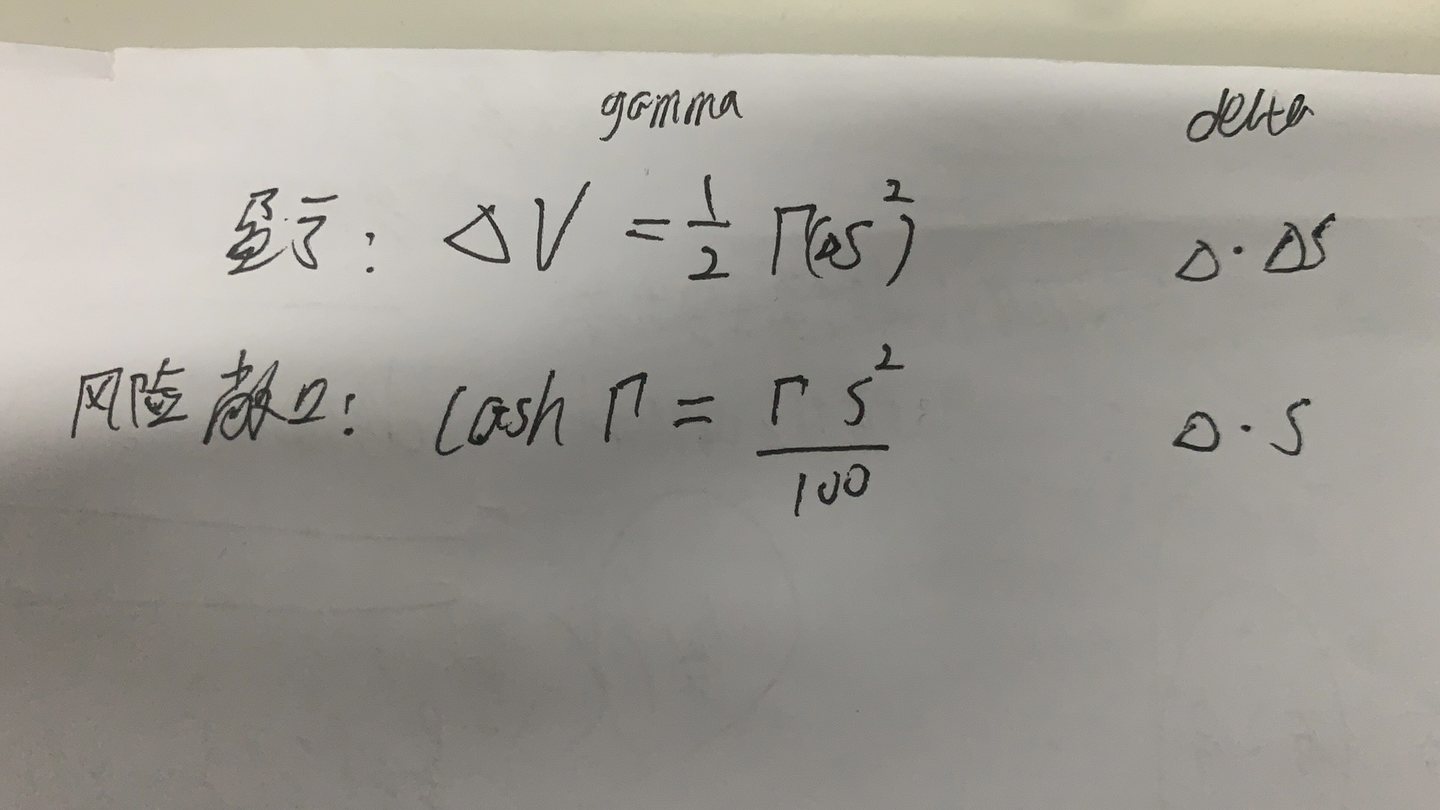 gamma delta
盈亏: ΔV = 1/2 Γ(ΔS²) Δ·ΔS
风险敞口: Cash Γ = Γ S² / 100 Δ·S